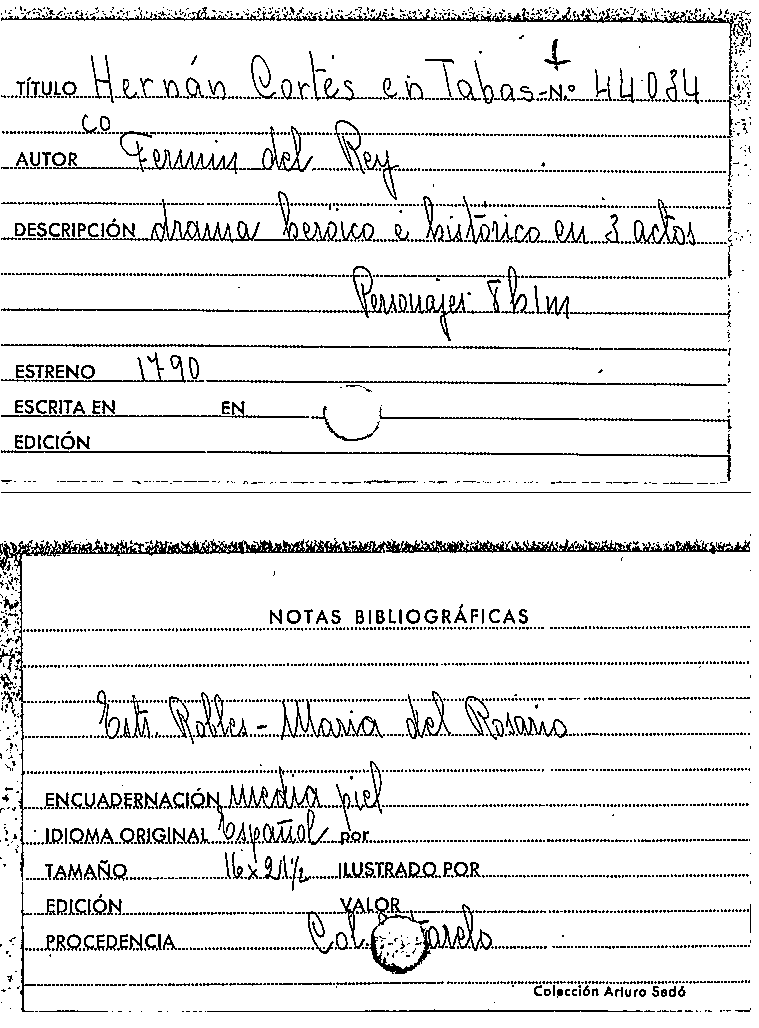 TÍTULO Hernán Cortés en Tabas- N.º 44034
co
AUTOR Fermin del Rey
DESCRIPCIÓN drama heróico é histórico en 3 actos
Personajes: 8 h 1 m
ESTRENO 1790
ESCRITA EN EN
EDICIÓN
NOTAS BIBLIOGRÁFICAS
Estr. Robles - Maria del Rosario
ENCUADERNACIÓN media piel
IDIOMA ORIGINAL Español por
TAMAÑO 16 x 21 1/2 ILUSTRADO POR
EDICIÓN VALOR
PROCEDENCIA Col.
Colección Arturo Sedó